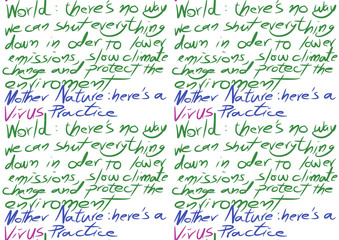 World : there's no way
we can shut everything
down in oder to lower
emissions, slow climate
change and protect the
enviroment
Mother Nature : here's a
Virus Practice
World : there's no way
we can shut everything
down in oder to lower
emissions, slow climate
change and protect the
enviroment
Mother Nature : here's a
Virus Practice
World : there's no way
we can shut everything
down in oder to lower
emissions, slow climate
change and protect the
enviroment
Mother Nature : here's a
Virus Practice
World : there's no way
we can shut everything
down in oder to lower
emissions, slow climate
change and protect the
enviroment
Mother Nature : here's a
Virus Practice